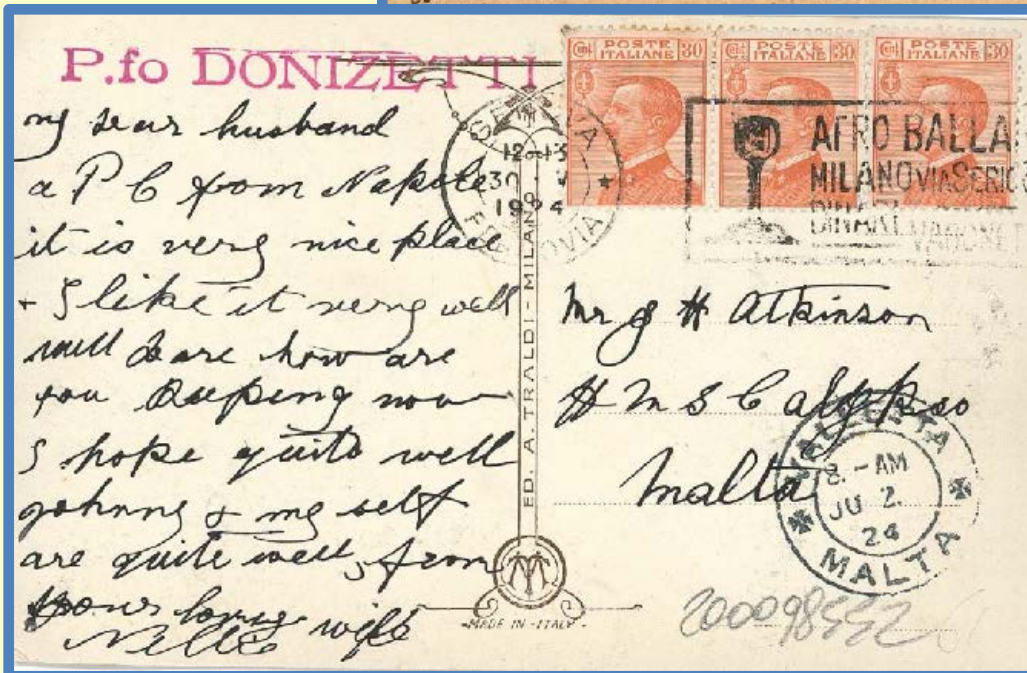 P.fo DONIZETTI
my dear husband
a P C from Napole
it is very nice place
+ I like it very well
well Deare how are
you Keeping now
I hope quite well
Johnny & my self
are quite well, from
your loving wife
Nellie
ED. A. TRALDI - MILANO
MADE IN ITALY
POSTE ITALIANE 30
POSTE ITALIANE 30
POSTE ITALIANE 30
GENOVA
12-13
30 V
1924
FERROVIA
AFRO BALLA
MILANO VIA SERIO
Mr J H Atkinson
H M S Calypso
Malta
VALLETTA
8.-AM
JU 2.
24
MALTA